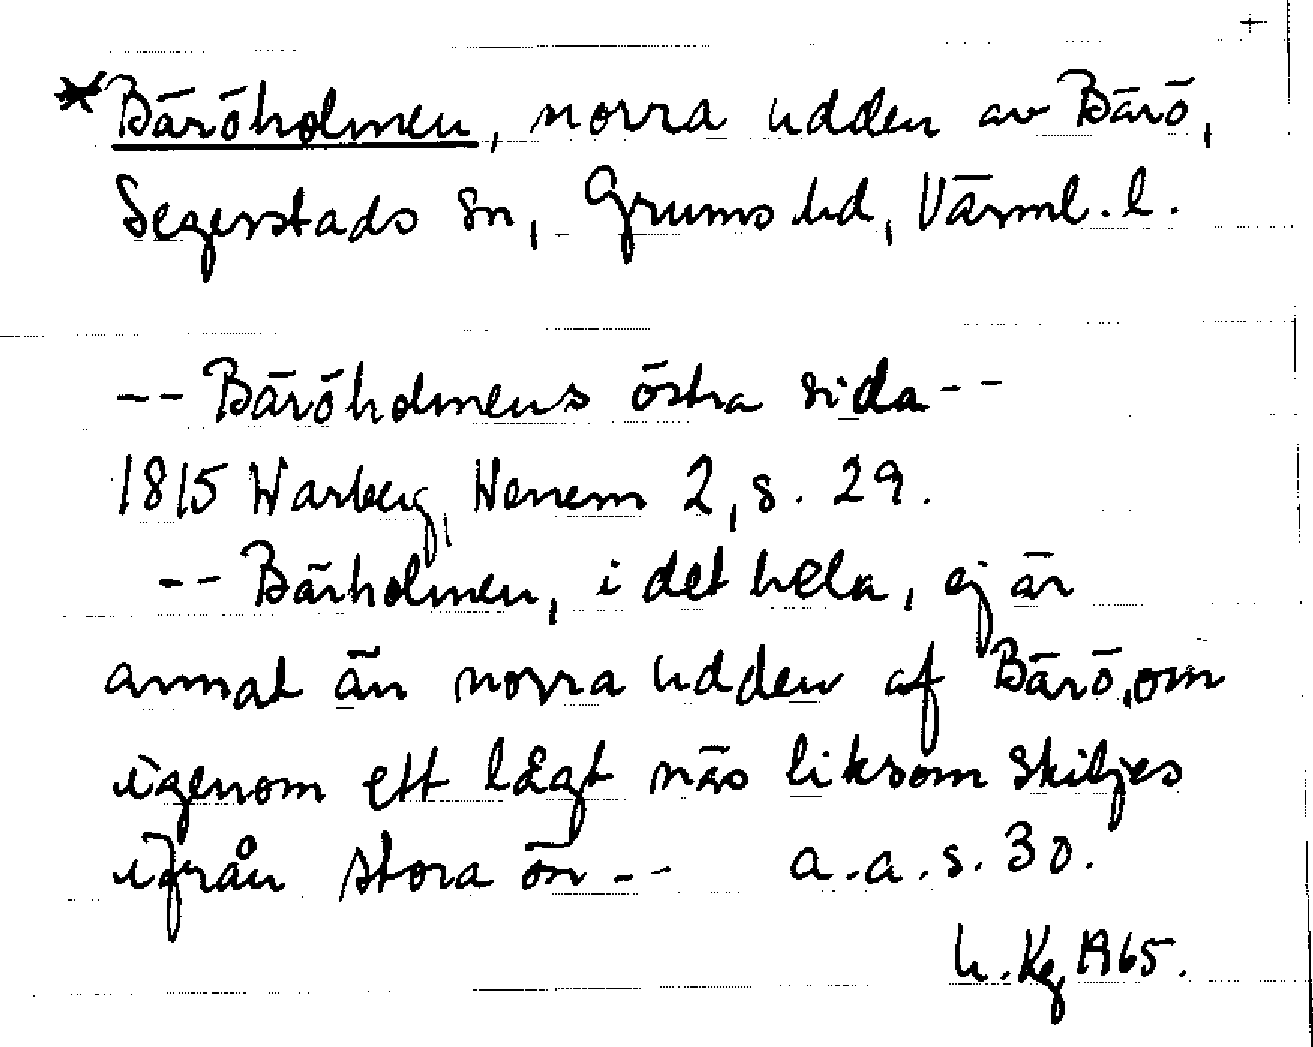 +
*Bäröholmen, norra udden av Bärö,
Segerstads sn, Grums hd, Värml. l.
-- Bäröholmens östra sida --
1815 Warberg, Wenern 2, s. 29.
-- Bärholmen, i det hela, ej är
annat än norra udden af Bärö, om
igenom ett lågt näs liksom skiljes
ifrån stora ön -- a.a.s. 30.
h. Kg 1965.